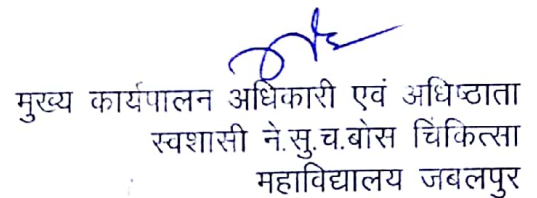 मुख्य कार्यपालन अधिकारी एवं अधिष्ठाता
स्वशासी ने.सु.च.बोस चिकित्सा
महाविद्यालय जबलपुर